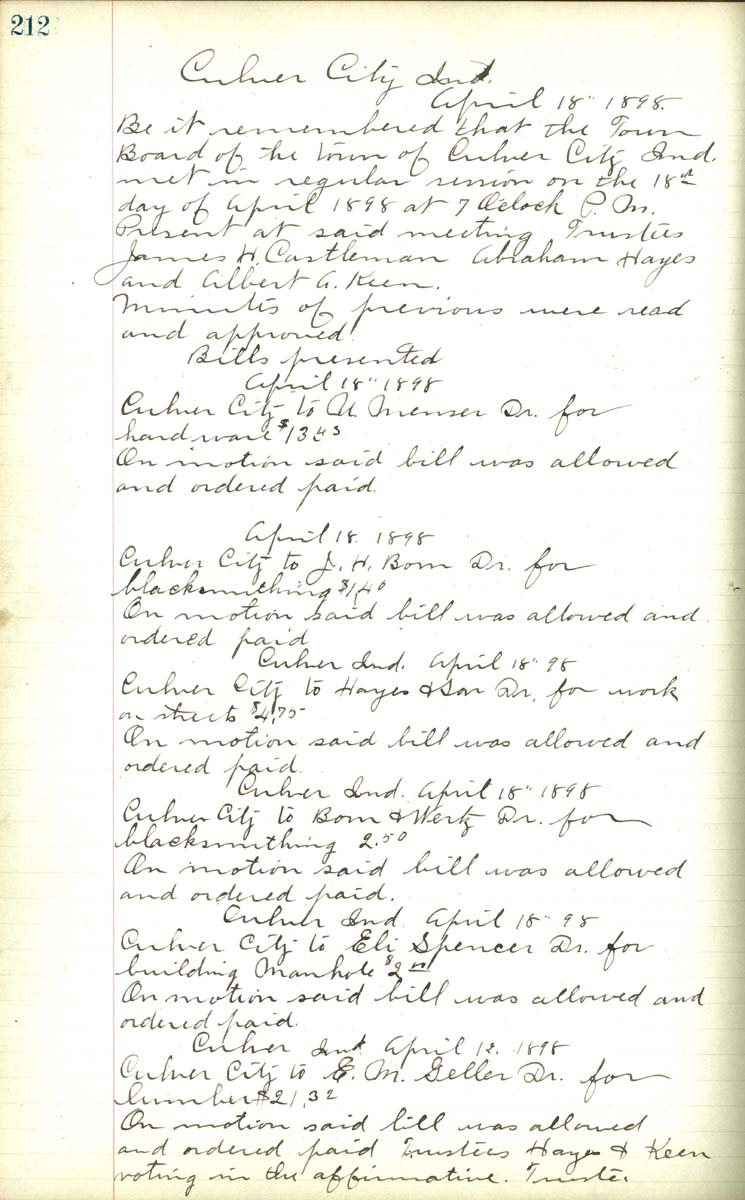 212
Culver City Ind.
April 18" 1898.
Be it remembered that the Town
Board of the town of Culver City Ind.
met in regular session on the 18th
day of April 1898 at 7 Oclock P. M.
Present at said meeting Trustees
James H. Castleman Abraham Hayes
and Albert A. Keen.
Minutes of previous were read
and approved.
Bills presented
April 18" 1898
Culver City to U. Menser Dr. for
hardware $13
On motion said bill was allowed
and ordered paid.
April 18. 1898
Culver City to J. H. Born Dr. for
blacksmithing $1.40
On motion said bill was allowed and
ordered paid
Culver Ind. April 18" 98
Culver City to Hayes & Son Dr. for work
on streets $4.75
On motion said bill was allowed and
ordered paid.
Culver Ind. April 18" 1898
Culver City to Born & Wertz Dr. for
blacksmithing 2.50
On motion said bill was allowed
and ordered paid.
Culver Ind. April 18" 98
Culver City to Eli Spencer Dr. for
building Manhole $2
On motion said bill was allowed and
ordered paid.
Culver Ind. April 12. 1898
Culver City to E. M. Geller Dr. for
lumber $21.32
On motion said bill was allowed
and ordered paid Trustees Hayes & Keen
voting in the affirmative. Trustee